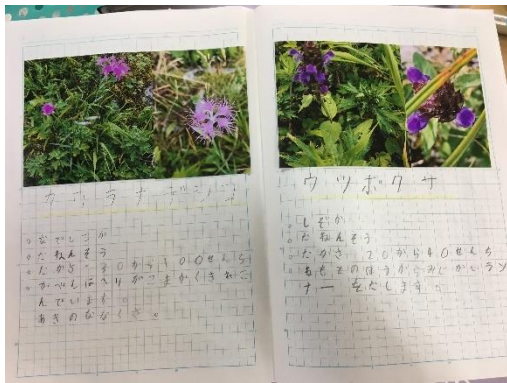 カワラナデシコ
。なでしこか
。たねんそう
。たかさ 30から100せんち
。かべんはへりがこまかくきれこ
んでいます。
あきのななくさ。
ウツボクサ
。しそか
。たねんそう
。たかさ 20から40せんち
。もとのほうからみじかいラン
ナーをだします。